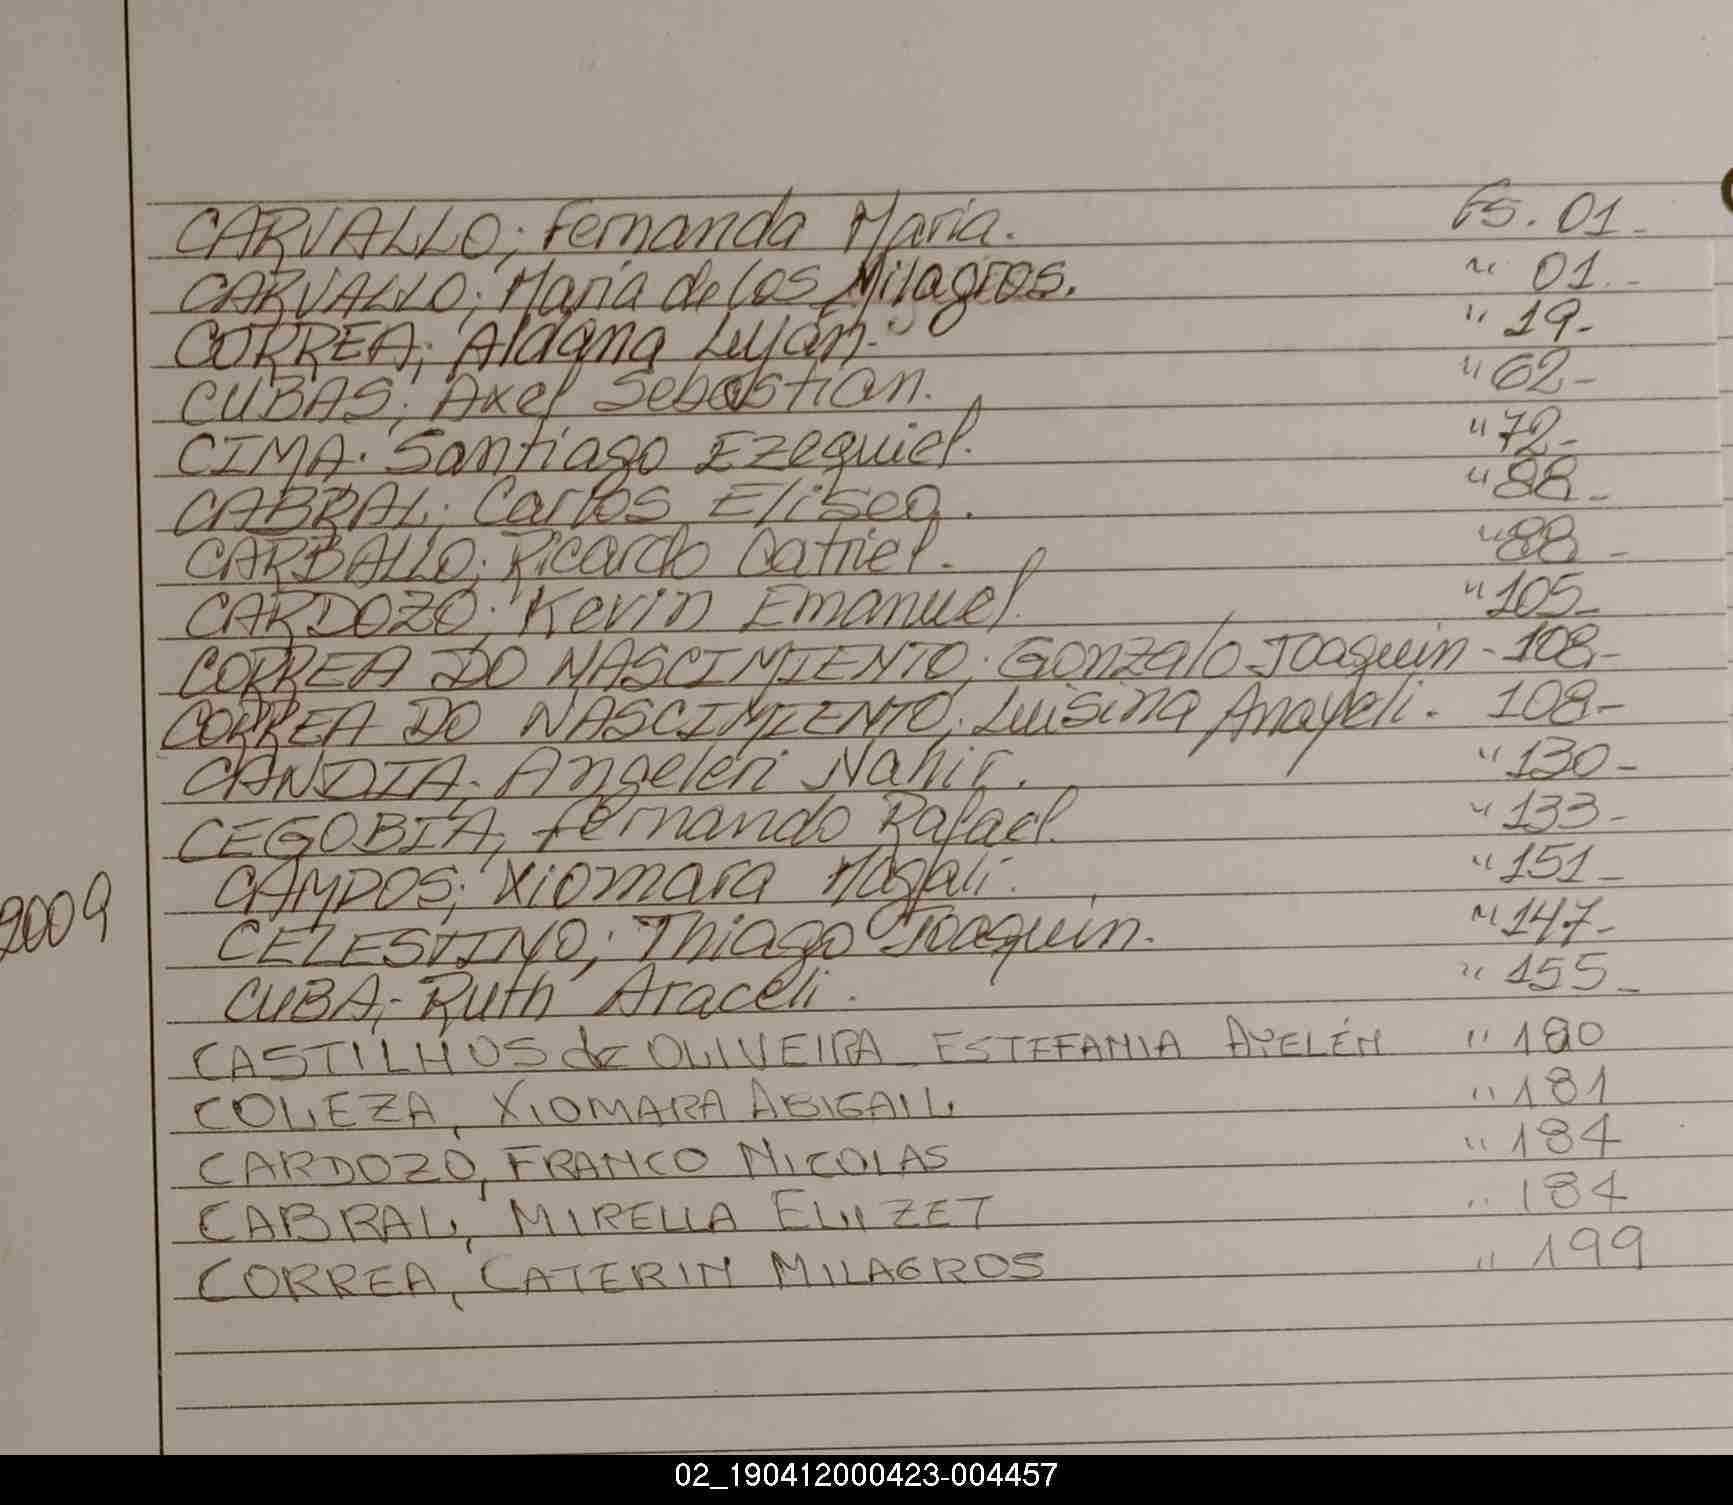 CARVALLO; Fernanda María. Fs. 01-
CARVALLO; María de los Milagros. " 01.-
CORREA; Aldana Luján. " 19-
CUBAS; Axel Sebastian. " 62-
CIMA. Santiago Ezequiel. " 72-
CABRAL; Carlos Eliseo. " 88-
CARBALLO; Ricardo Catriel. " 88-
CARDOZO; Kevin Emanuel. " 105-
CORREA DO NASCIMIENTO; Gonzalo Joaquin - 108-
CORREA DO NASCIMIENTO; Luisina Anayeli. 108-
CANDIA- Angeleri Nahir. " 130-
CEGOBIA, Fernando Rafael. " 133-
CAMPOS; Xiomara Magali. " 151-
2009 CELESTINO; Thiago Joaquin. " 147-
CUBA,- Ruth Araceli. " 155-
CASTILHOS de OLIVEIRA ESTEFANIA AYELÉN " 180
COLEZA, XIOMARA ABIGAIL " 181
CARDOZO, FRANCO NICOLAS " 184
CABRAL, MIRELLA ELIZET " 184
CORREA, CATERIN MILAGROS " 199
02_190412000423-004457